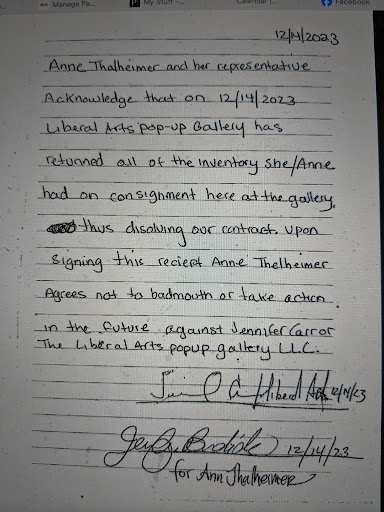 Manage Pa...
My Stuff -...
Calendar |...
Facebook
12/14/2023
Anne Thalheimer and her representative
Acknowledge that on 12/14/2023
Liberal Arts pop-up Gallery has
returned all of the inventory she/Anne
had on consignment here at the gallery,
thus disolving our contract. Upon
signing this reciept Anne Thelheimer
Agrees not to badmouth or take action
in the future against Jennifer Carr or
The Liberal Arts popup gallery LLC.
12/14/23
12/14/23
for Ann Thalheimer